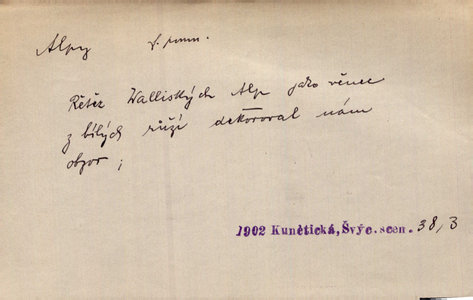 Alpy f. pom.
Řetěz Walliských Alp jako věnec
z bílých růží dekoroval nám
obzor;
1902 Kunětická, Švýc. scen. 38,3